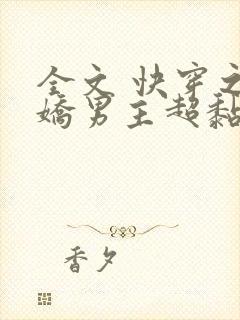 全文 快穿之
嬌男主超黏
香夕